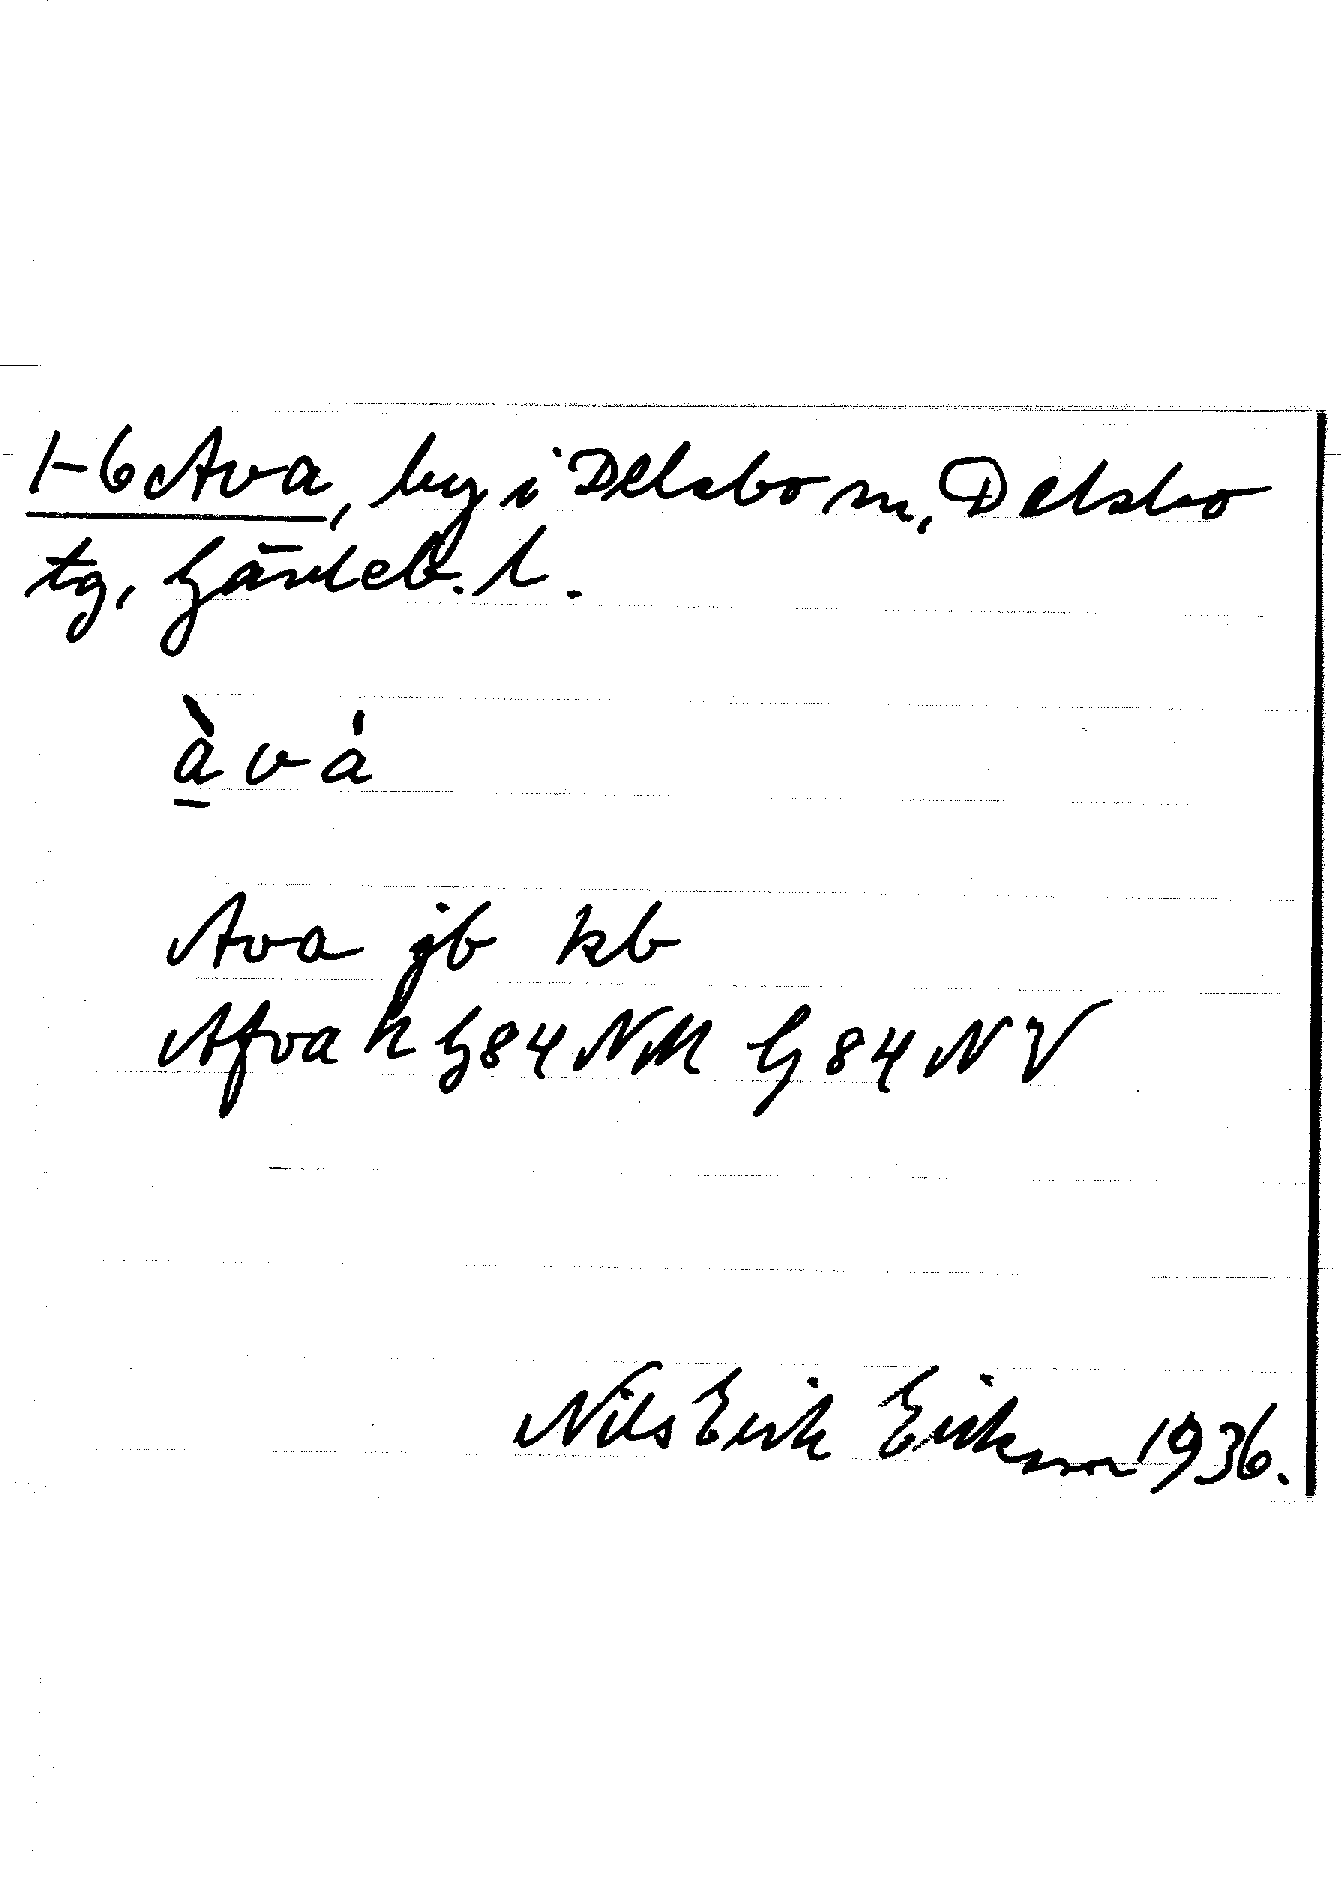 1-6 Ava, by i Delsbo sn, Delsbo
tg, Gävleb. l.
àvá
Ava jb kb
Afva k G84NM G84NV
Nils Erik Erikson 1936.